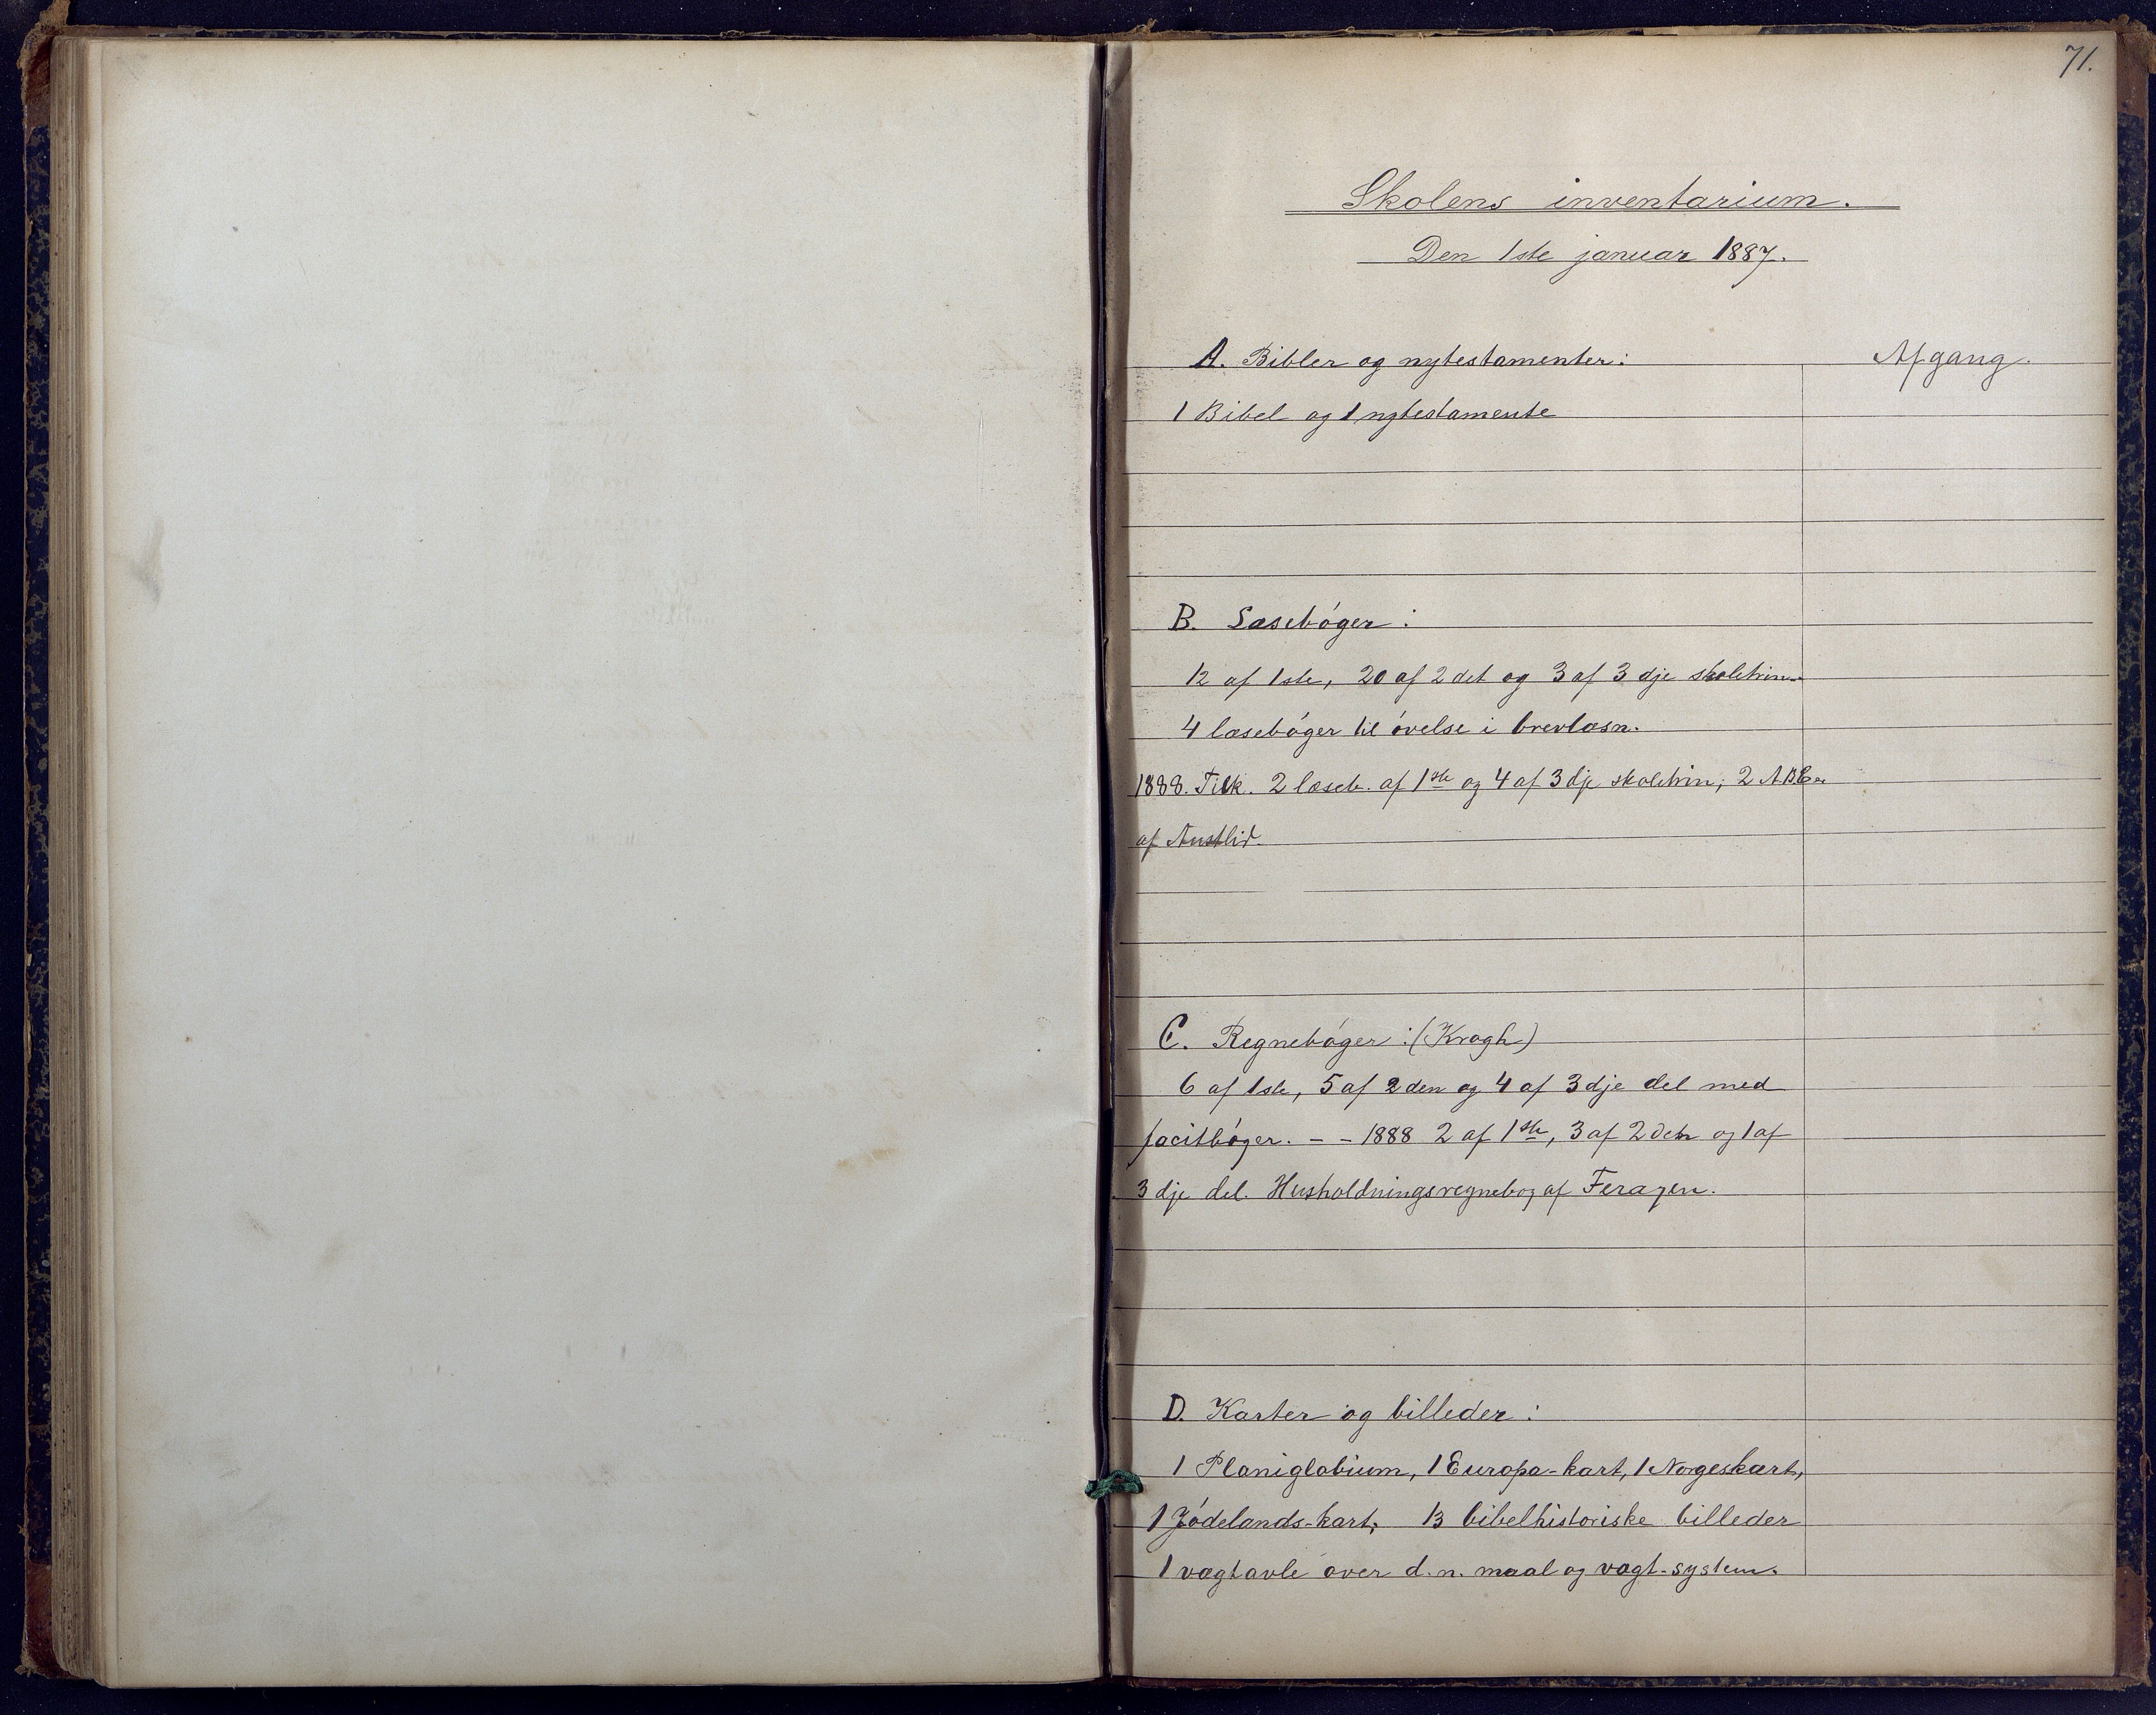 71.
Skolens inventarium.
Den 1ste januar 1887.
A. Bibler og nytestamenter: Afgang.
1 Bibel og 1 nytestamente
B. Læsebóger:
12 af 1ste, 20 af 2det og 3 af 3dje skoletrin.
4 læsebóger til óvelse i brevlæsn.
1888. Tilk. 2 læseb. af 1ste og 4 af 3dje skoletrin; 2 ABCer
af Austlid.
C. Regnebóger: (Krogh)
6 af 1ste, 5 af 2den og 4 af 3dje del med
facitbóger. – – 1888 2 af 1ste, 3 af 2den og 1 af
3dje del. Husholdningsregnebog af Feragen.
D. Karter og billeder:
1 Planiglobium, 1 Europa-kart, 1 Norgeskart,
1 Jódelands-kart, 13 bibelhistoriske billeder
1 vægtavle over d. n. maal og vægt-system.